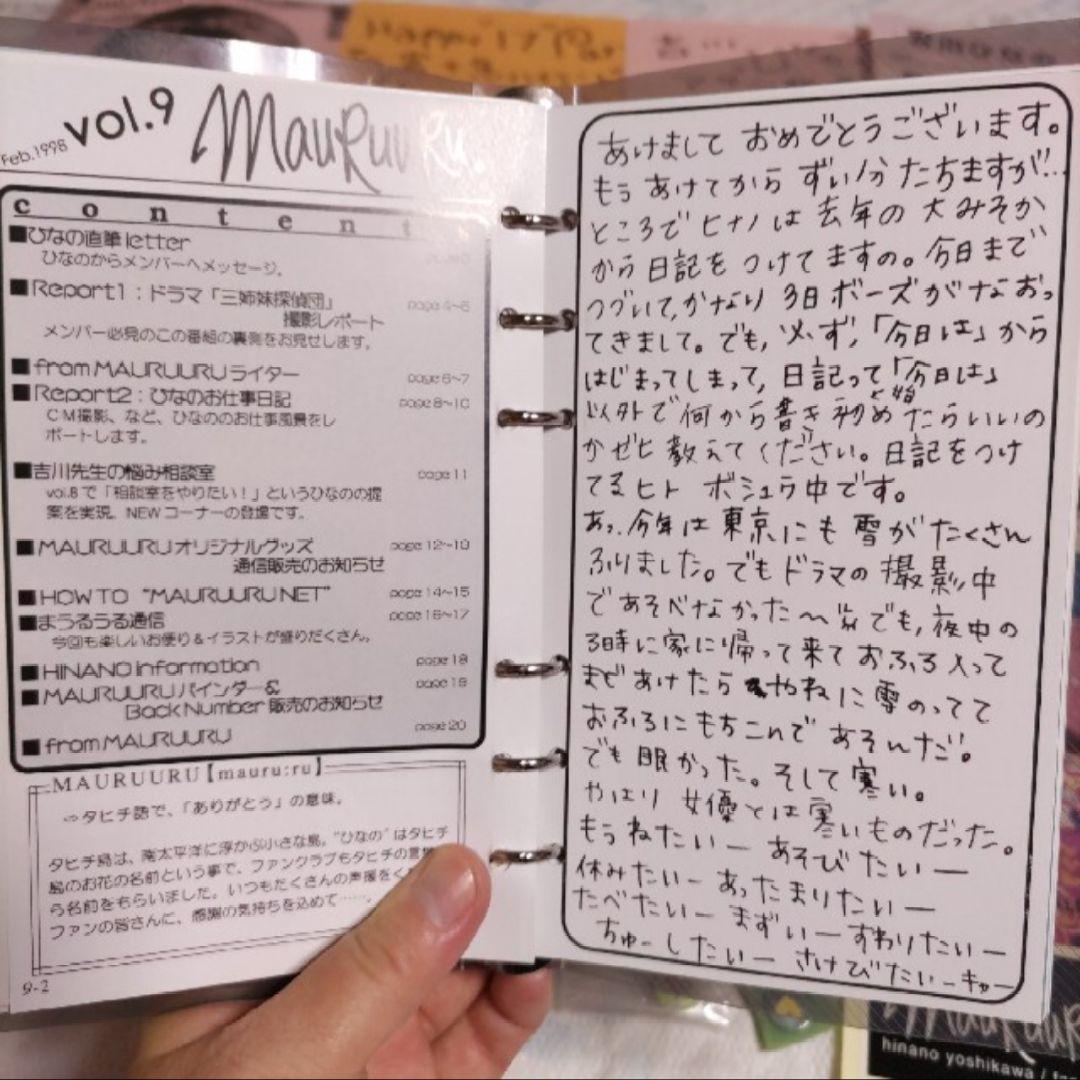 Feb.1998 vol.9 MAURUURU.
contents
■ひなの直筆letter
ひなのからメンバーへメッセージ。
■Report1：ドラマ「三姉妹探偵団」
撮影レポート page 4~5
メンバー必見のこの番組の裏側をお見せします。
■from MAURUURUライター page 6~7
■Report2：ひなのお仕事日記 page 8~10
CM撮影、など、ひなののお仕事風景をレ
ポートします。
■吉川先生の悩み相談室 page 11
vol.8で「相談室をやりたい！」というひなのの提
案を実現、NEWコーナーの登場です。
■MAURUURUオリジナルグッズ page 12~13
通信販売のお知らせ
■HOW TO “MAURUURU NET” page 14~15
■まうるうる通信 page 16~17
今回も楽しいお便り＆イラストが盛りだくさん。
■HINANO information page 18
■MAURUURUバインダー＆ page 19
Back Number 販売のお知らせ
■from MAURUURU page 20
MAURUURU【mauru:ru】
⇨タヒチ語で、「ありがとう」の意味。
タヒチ島は、南太平洋に浮かぶ小さな島。“ひなの”はタヒチ
島のお花の名前という事で、ファンクラブもタヒチの言
ら名前をもらいました。いつもたくさんの声援をく
ファンの皆さんに、感謝の気持ちを込めて……。
9-2
あけまして おめでとうございます。
もう あけてから ずい分 たちますが…
ところで ヒナノは 去年の 大みそか
から 日記を つけてますの。今日まで
つづいて、かなり 3日ボーズが なおっ
てきまして。でも、必ず、「今日は」から
はじまってしまって、日記って「今日は」
以外で 何から 書き初めたらいいの
始
かゼヒ 教えて ください。日記をつけ
てるヒト ボシュウ中です。
あっ、今年は 東京にも 雪が たくさん
ふりました。でも ドラマの 撮影中
で あそべなかった〜 でも、夜中の
3時に 家に 帰って 来て おふろ 入って
まど あけたら やねに 雪 のってて
おふろに もちこんで あそんだ。
でも 眠かった。そして 寒い。
やはり 女優とは 寒いものだった。
もう ねたいー あそびたいー
休みたいー あったまりたいー
たべたいー まずいー すわりたいー
ちゅーしたいー さけびたいーキャー
MAURUURU
hinano yoshikawa /